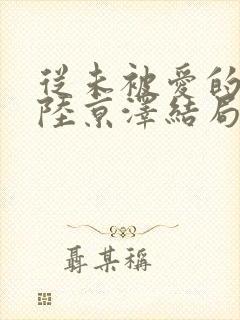 從未被愛的
陸京澤結局
聶某稱